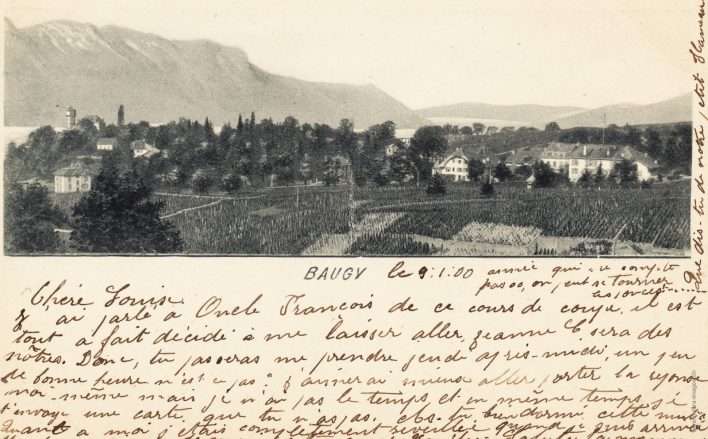 BAUGY le 9.1.00 année qui ne compte
pas 00, on peut se tourner
Chère Louise
J'ai parlé a Oncle François de ce cours de coupe, il est
tout a fait décidé a me laisser aller, Jeanne C sera des
nôtres. Donc, tu passeras me prendre jeudi après-midi, un peu
de bonne heure n'est ce pas? J'aimerai mieux aller porter la reponse
moi-même mais je n'ai pas le temps, et en même temps, je
t'envoye une carte que tu n'as pas. bien dormi cette nuit
Quant a moi j'étais complètement reveillée quand je suis arrivée
Que dis-tu de notre petit Hameau